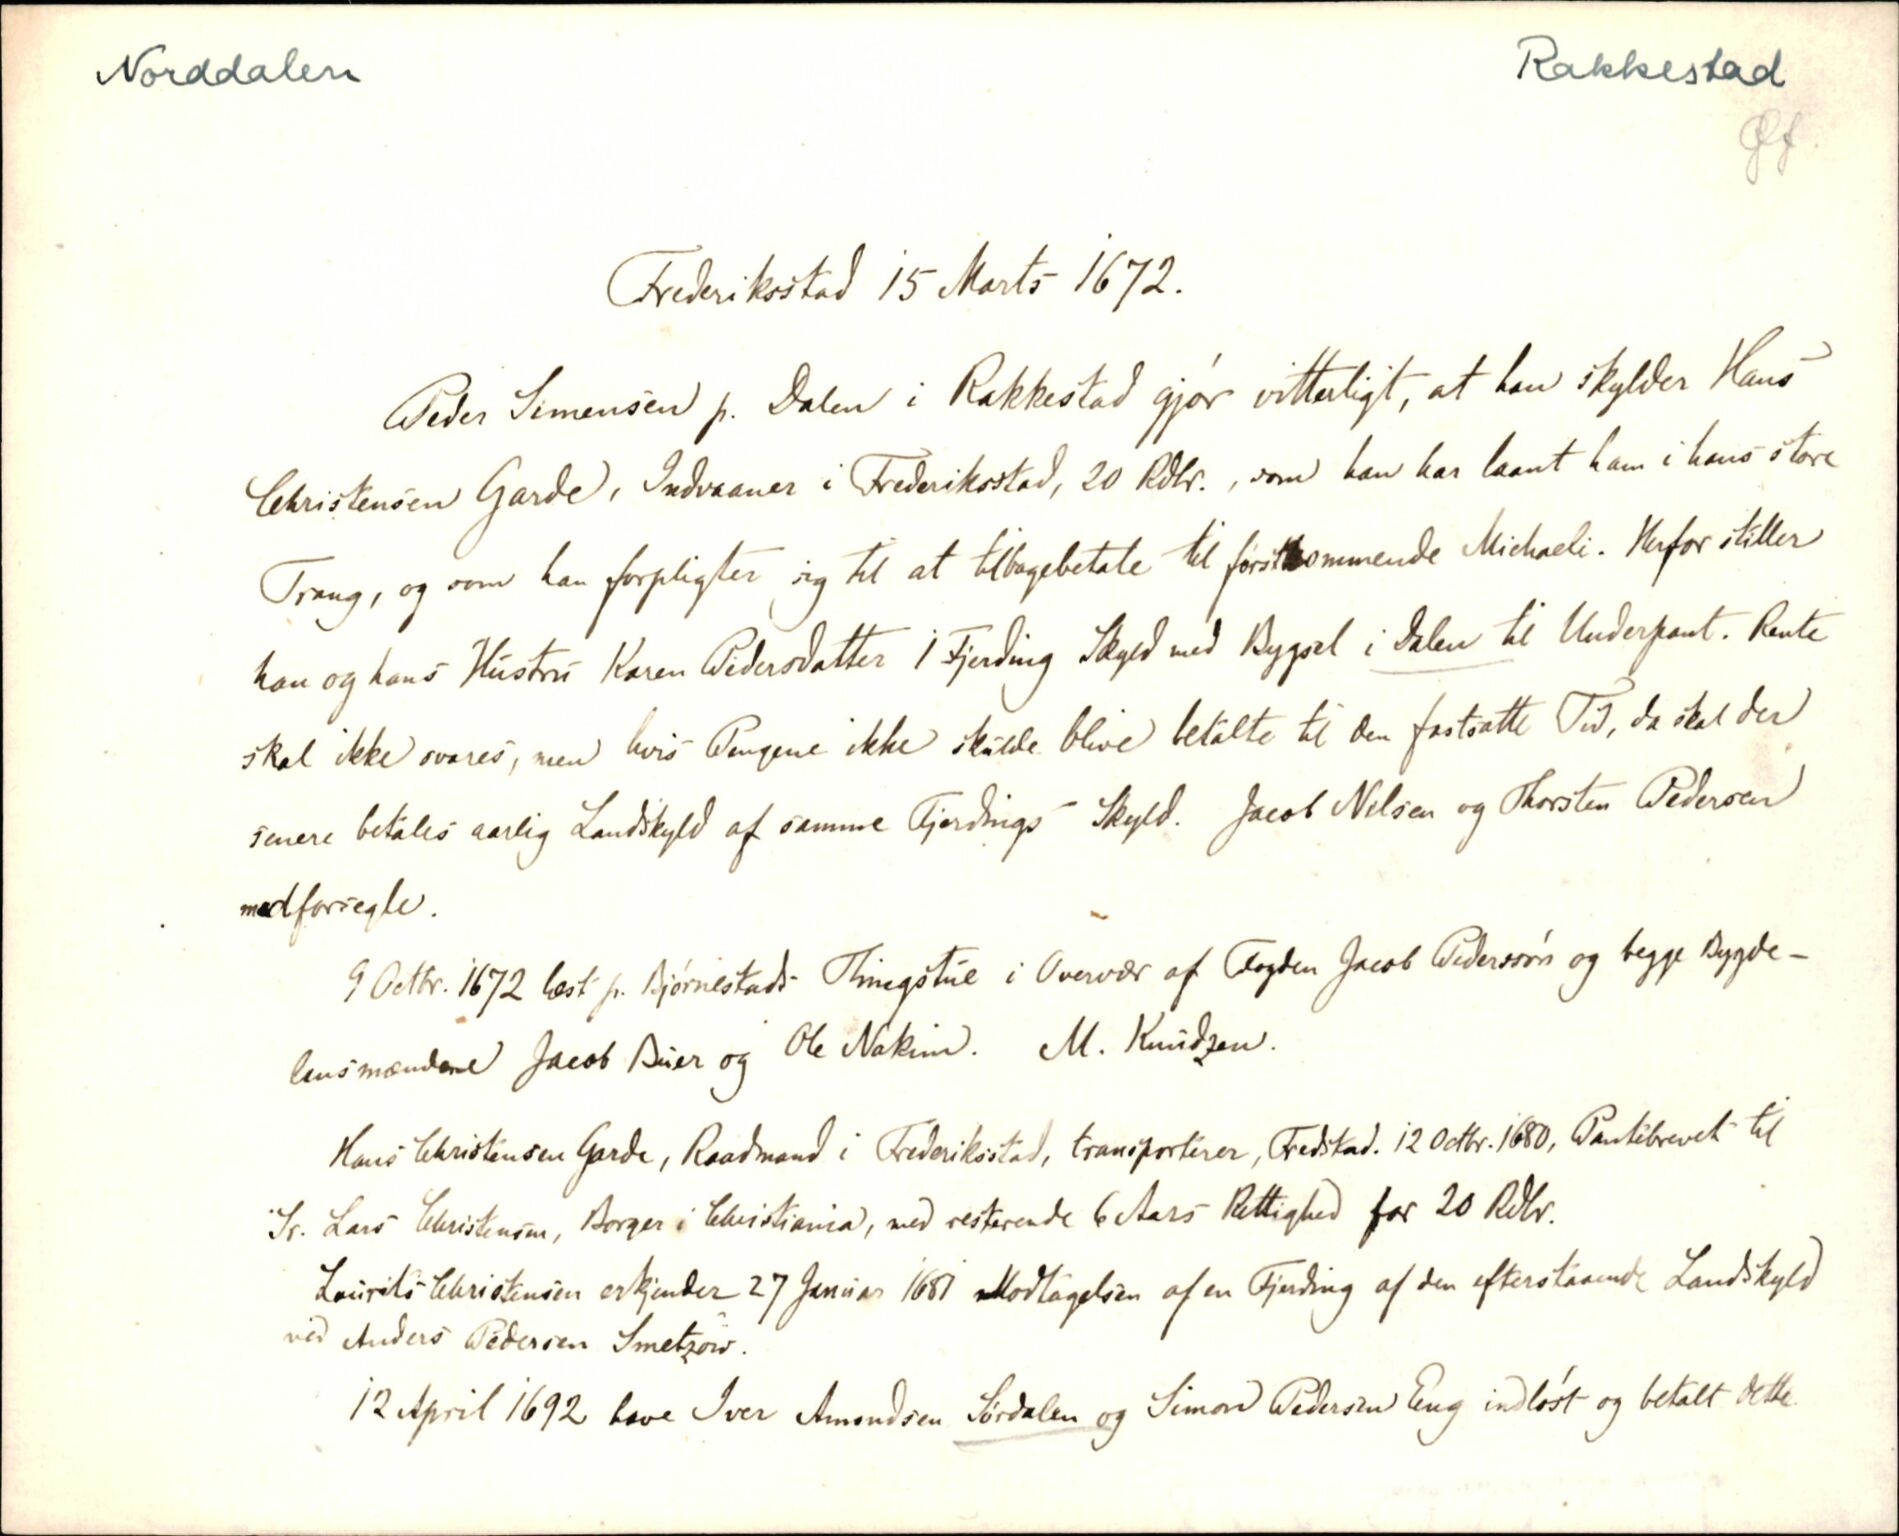 Norddalen
Rakkestad
Øf.
Frederiksstad 15 Marts 1672.
Peder Simensen p. Dalen i Rakkestad gjør vitterligt, at han skylder Hans
Christensen Garde, Indvaaner i Frederiksstad, 20 Rdlr., som han har laant ham i hans store
Trang, og som han forpligter sig til at tilbagebetale til førstkommende Michaeli. Herfor stiller
han og hans Hustru Karen Pedersdatter 1 Fjerding Skyld med Bygsel i Dalen til Underpant. Rente
skal ikke svares, men hvis Pengene ikke skulde blive betalte til den fastsatte Tid, da skal der
senere betales aarlig Landskyld af samme Fjerdings Skyld. Jacob Nilsen og Thorsten Pedersen
medforsegle.
9 Octbr. 1672 læst p. Bjørnestads Thingstue i Overvær af Fogden Jacob Pedersøn og begge Bygde-
lensmændene Jacob Buer og Ole Nakim. M. Knudzen.
Hans Christensen Garde, Raadmand i Frederiksstad, transporterer, Fredstad. 12 Octbr. 1680, Pantebrevet til
Sr. Lars Christensen, Borger i Christiania, med resterende 6 Aars Rettighed for 20 Rdlr.
Laurits Christensen erkjender 27 Januar 1681 Modtagelsen af en Fjerding af den efterstaaende Landskyld
ved Anders Pedersen Smetzow.
12 April 1692 have Iver Amundsen Sørdalen og Simon Pedersen Eng indløst og betalt dette